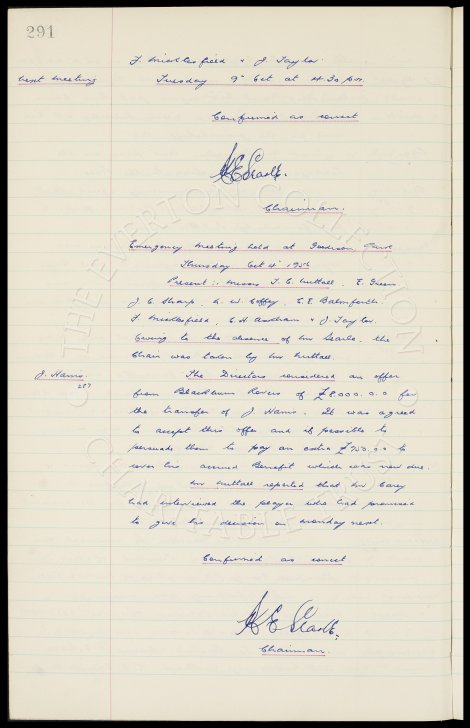 291
F. Micklesfield & J. Taylor.
Next Meeting Tuesday 9th Oct at 4.30 p.m.
Confirmed as correct
Chairman.
Emergency Meeting held at Goodison Park
Thursday Oct 4th 1956
Present :- Messrs T. C. Nuttall, E. Green
J. C. Sharp, R. W. Coffey, C. E. Balmforth
F. Micklesfield, E. H. & J. Taylor.
Owing to the absence of Mr Searle, the
Chair was taken by Mr Nuttall.
J. Harris. The Directors considered an offer
287 from Blackburn Rovers of £8000.0.0 for
the transfer of J. Harris. It was agreed
to accept this offer and if possible to
persuade them to pay an extra £750.0.0 to
cover his accrued Benefit which was now due.
Mr Nuttall reported that Mr Carey
had interviewed the player who had promised
to give his decision on Monday next.
Confirmed as correct
Chairman.
THE EVERTON COLLECTION
CHARITABLE TRUST